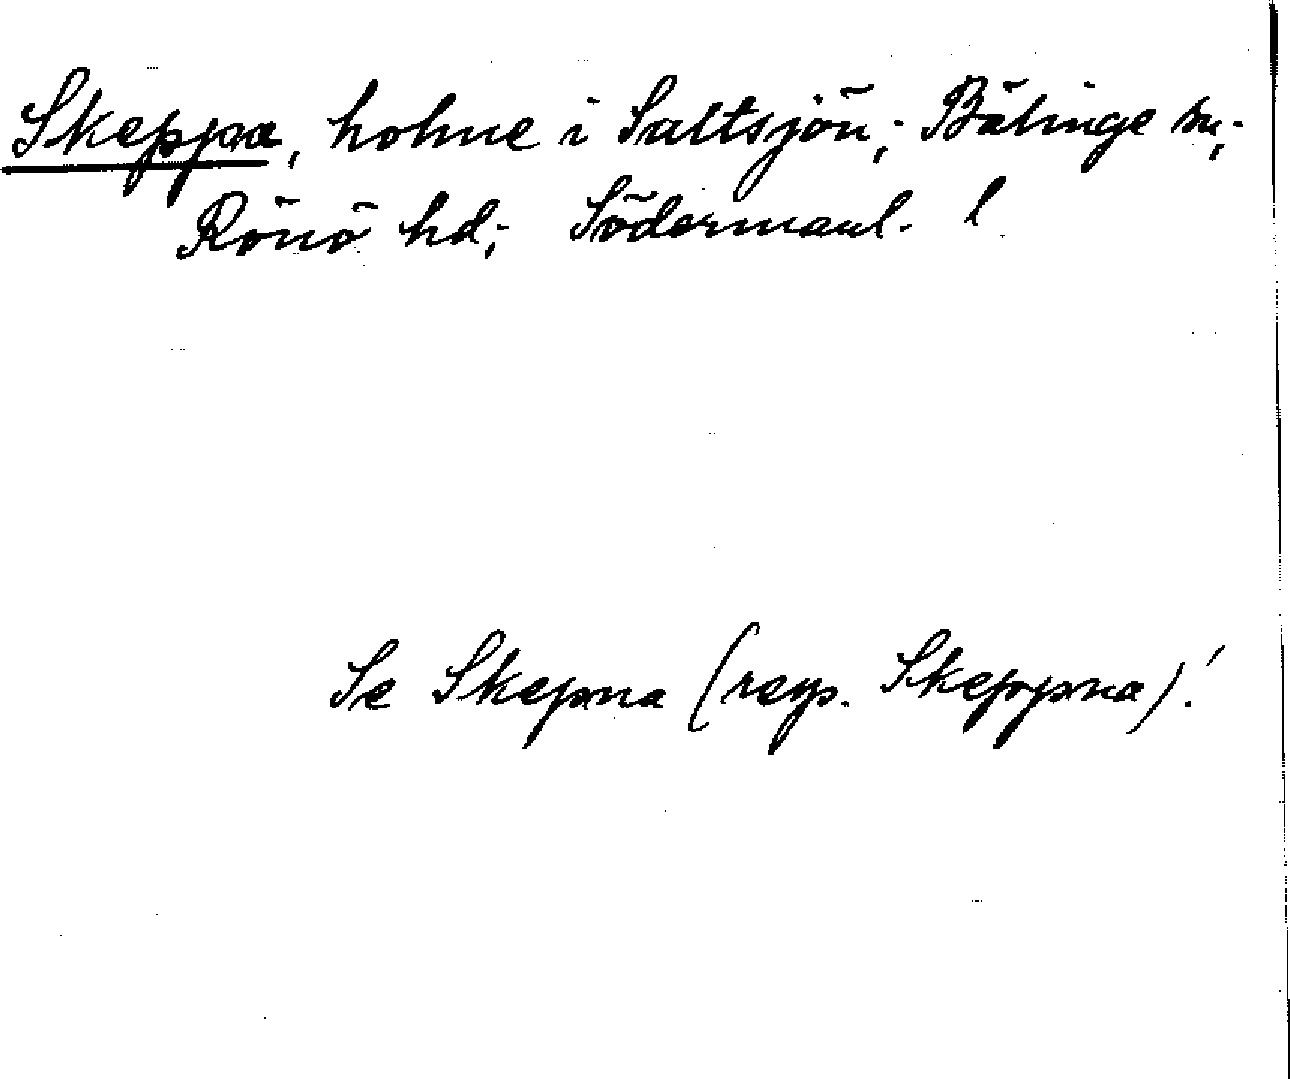 Skeppa, holme i Saltsjön; Bälinge sn;
Rönö hd; Södermanl. l
Se Skepna (resp. Skeppna)!